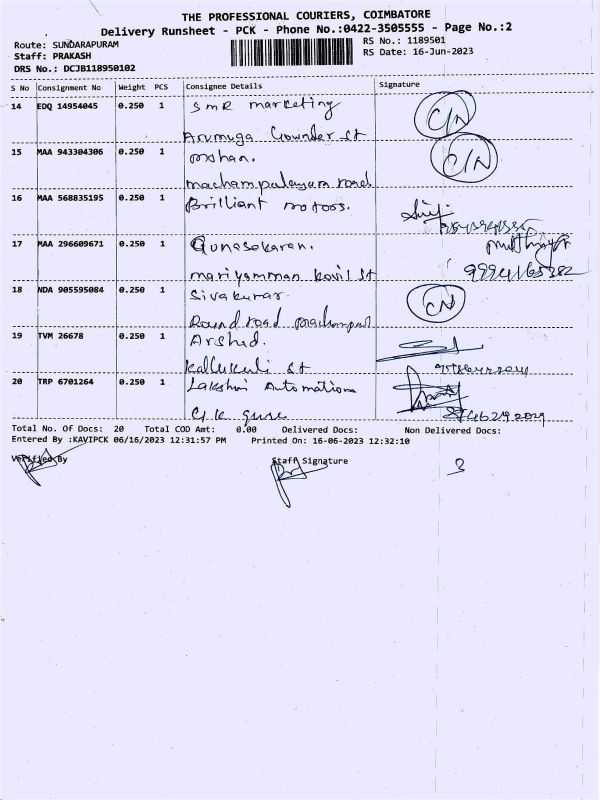 THE PROFESSIONAL COURIERS, COIMBATORE
Delivery Runsheet - PCK - Phone No.:0422-3505555 - Page No.:2
Route: SUNDARAPURAM
RS No.: 1189501
Staff: PRAKASH
RS Date: 16-Jun-2023
DRS No.: DCJB118950102
S No Consignment No Weight PCS Consignee Details Signature
14 EDQ 14954045 0.250 1 SMR marketing
Arumuga Gownder St
C/N
15 MAA 943304306 0.250 1 mohan.
machampalayam road
C/N
16 MAA 568835195 0.250 1 Brilliant motors.
17 MAA 296609671 0.250 1 Gunasekaran.
mariyamman kovil St
9994165282
18 NDA 905595084 0.250 1 Sivakumar.
Round road
CN
19 TVM 26678 0.250 1 Arshad.
St
20 TRP 6701264 0.250 1 Lakshmi Automation
G.K
Total No. Of Docs: 20 Total COD Amt: 0.00 Delivered Docs: Non Delivered Docs:
Entered By :KAVIPCK 06/16/2023 12:31:57 PM Printed On: 16-06-2023 12:32:10
Verified By Staff Signature
3